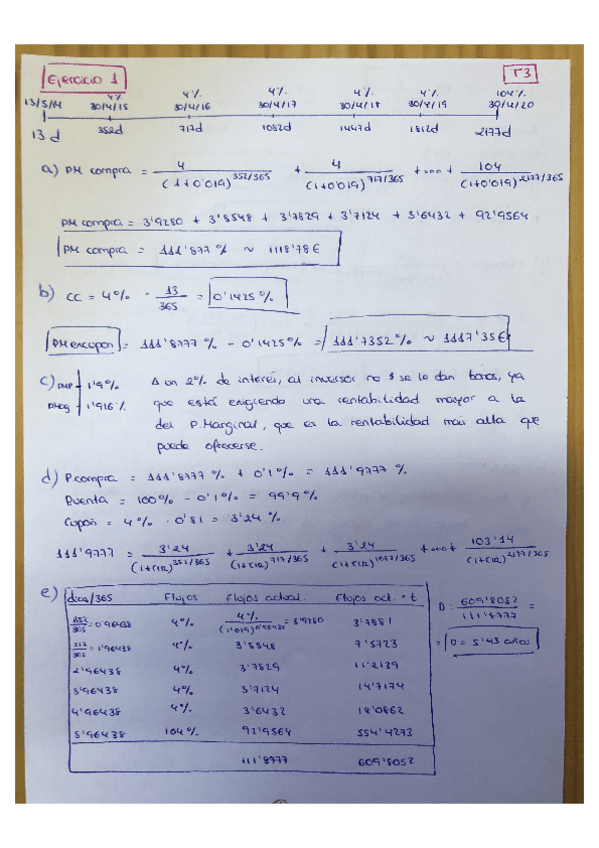 Ejercicio 1
T3
4% 4% 4% 4% 4% 104%
13/5/14 30/4/15 30/4/16 30/4/17 30/4/18 30/4/19 30/4/20
13 d 352d 717d 1082d 1447d 1812d 2177d
a) PM compra = 4/(1+0'019)^352/365 + 4/(1+0'019)^717/365 + ... + 104/(1+0'019)^2177/365
PM compra = 3'9280 + 3'8548 + 3'7829 + 3'7124 + 3'6432 + 92'9564
PM compra = 111'877 % ~ 1118'78€
b) CC = 4% · 13/365 = 0'1425%
PM excupón = 111'8777 % - 0'1425% = 111'7352% ~ 1117'35€
c) PMP 1'9% Δ on 2% de interés, al inversor no se le dan bonos, ya
PMag 1'916% que está exigiendo una rentabilidad mayor a la
del P.Marginal, que es la rentabilidad más alta que
puede ofrecerse.
d) P.compra = 111'8777 % + 0'1% = 111'9777 %
P.venta = 100% - 0'1% = 99'9%
Cupón = 4% · 0'81 = 3'24 %
111'9777 = 3'24/(1+r12)^352/365 + 3'24/(1+r12)^717/365 + 3'24/(1+r12)^1087/365 + ... + 103'14/(1+r12)^2177/365
e) días/365 Flujos Flujos actual. Flujos act. · t
352/365 = 0'96438 4% 4%/(1'019)^0'96438 = 3'9280 3'7881
717/365 = 1'96438 4% 3'8548 7'5723
2'96438 4% 3'7829 11'2139
3'96438 4% 3'7124 14'7174
4'96438 4% 3'6432 18'0862
5'96438 104% 92'9564 554'4273
111'8777 609'8052
D = 609'8052/111'8777 =
= D = 5'45 años